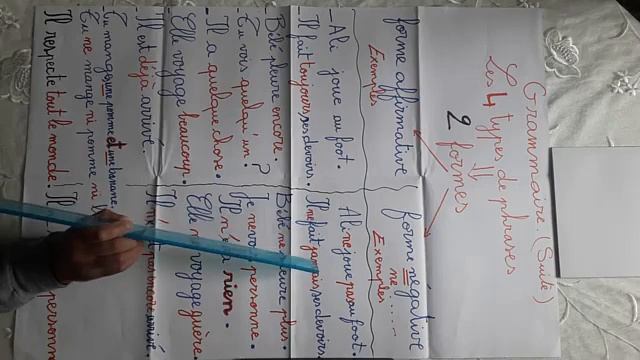 Grammaire. (Suite)
Les 4 types de phrases
2 formes
forme affirmative
Exemples
_ Ali joue au foot.
_ Il fait toujours ses devoirs.
Bébé pleure encore.
Tu vois quelqu'un ?
_ Il a quelque chose.
Elle voyage beaucoup.
Il est déjà arrivé.
_ Tu manges une pomme et une banane.
Tu ne mange ni pomme ni
Il respecte tout le monde.
forme négative
ne ....
Exemples
Ali ne joue pas au foot.
Il ne fait jamais ses devoirs.
Bébé ne pleure plus.
Je ne vois personne.
Il n'a rien.
Elle voyage guère.
Il pas encore arrivé.
Il personn